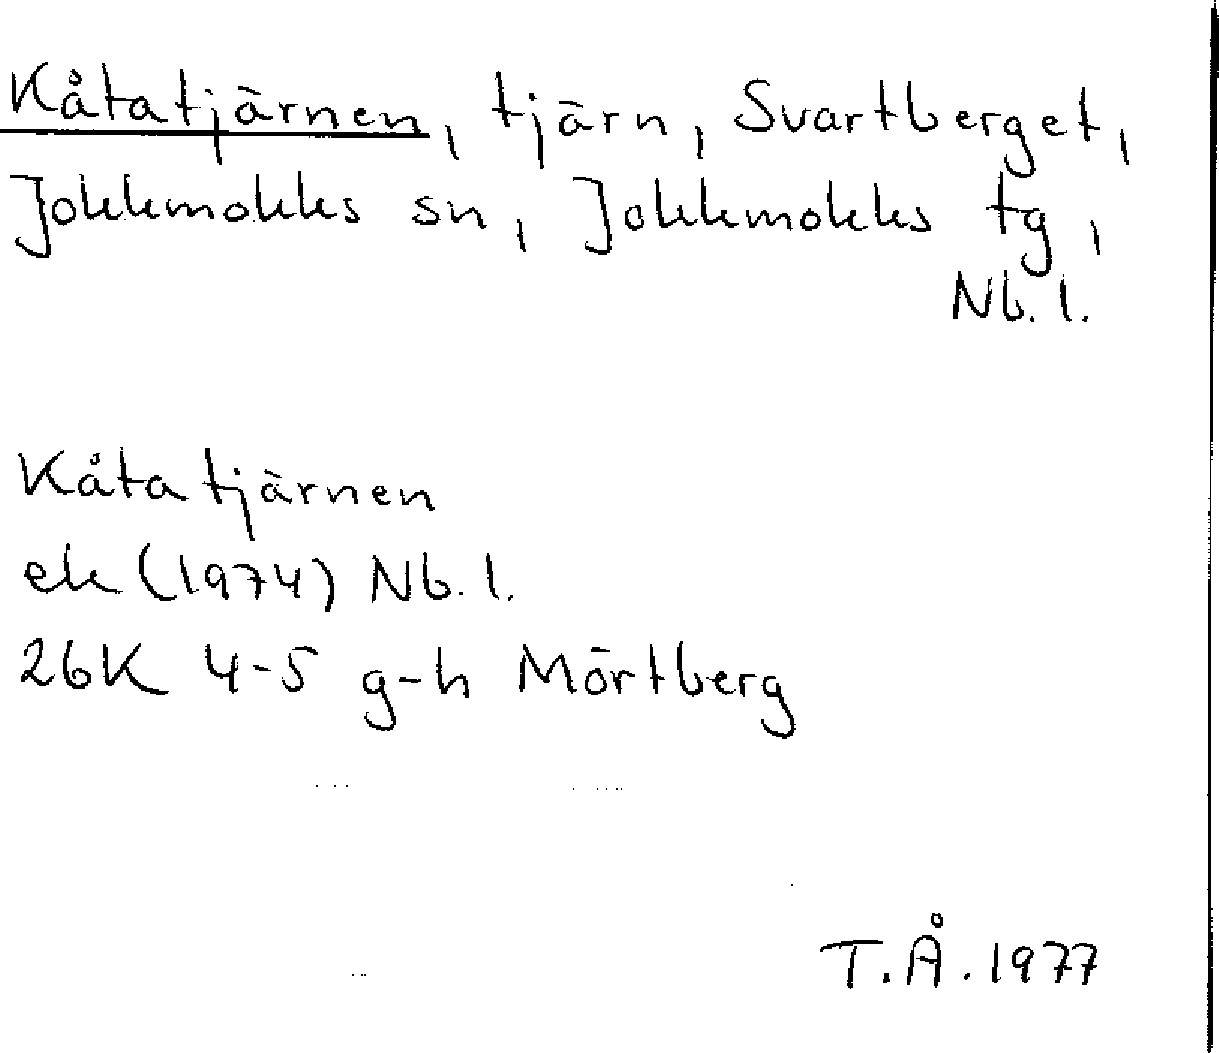 Kåtatjärnen, tjärn, Svartberget,
Jokkmokks sn, Jokkmokks tg,
Nb. l.
Kåtatjärnen
ek (1974) Nb. l.
26K 4-5 g-h Mörtberg
T.Å. 1977